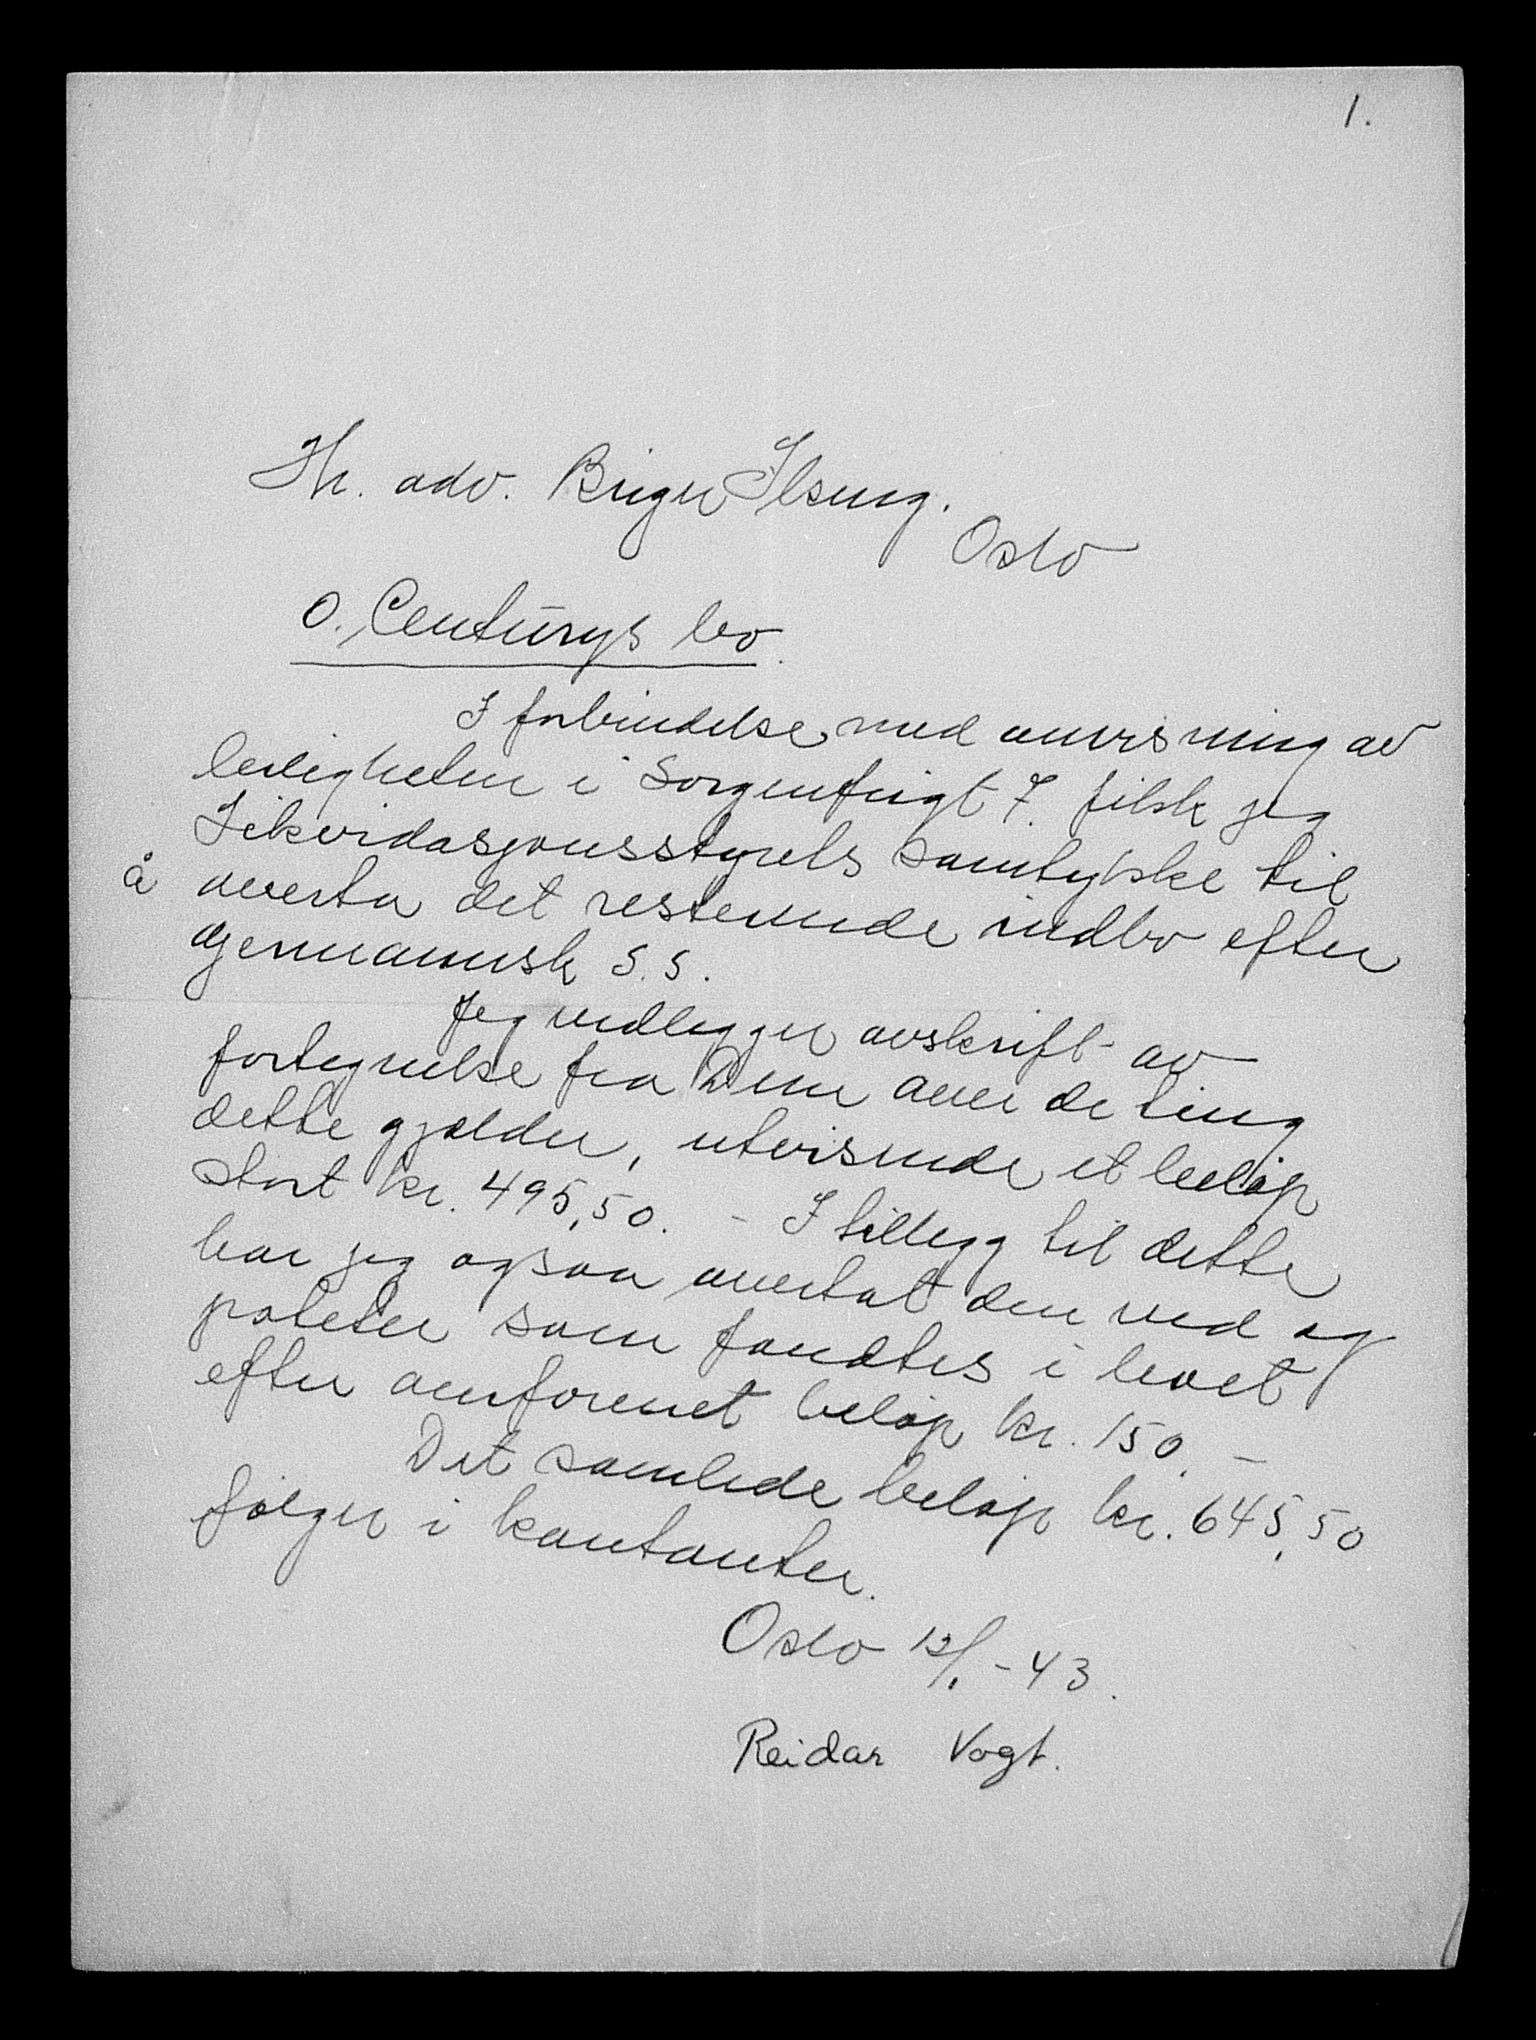 1.
Hr. adv. Birger Ilsung.
Oslo
O. Centurys bo.
I forbindelse med anvisning av
leiligheten i Sorgenfrigt 7. fikk jeg
Likvidasjonsstyrets samtykke til
å overta det resterende indbo efter
Germannsk S.S.
Jeg vedlegger avskrift av
fortegnelse fra Dem over de ting
dette gjælder, utvisende et beløp
stort kr. 495,50. - I tillegg til dette
har jeg ogsaa overtat den ved og
poteter som fandtes i boet
efter omforenet beløp kr. 150. -
Det samlede beløp kr. 645,50
følger i kontanter.
Oslo 12/1 - 43.
Reidar Vogt.